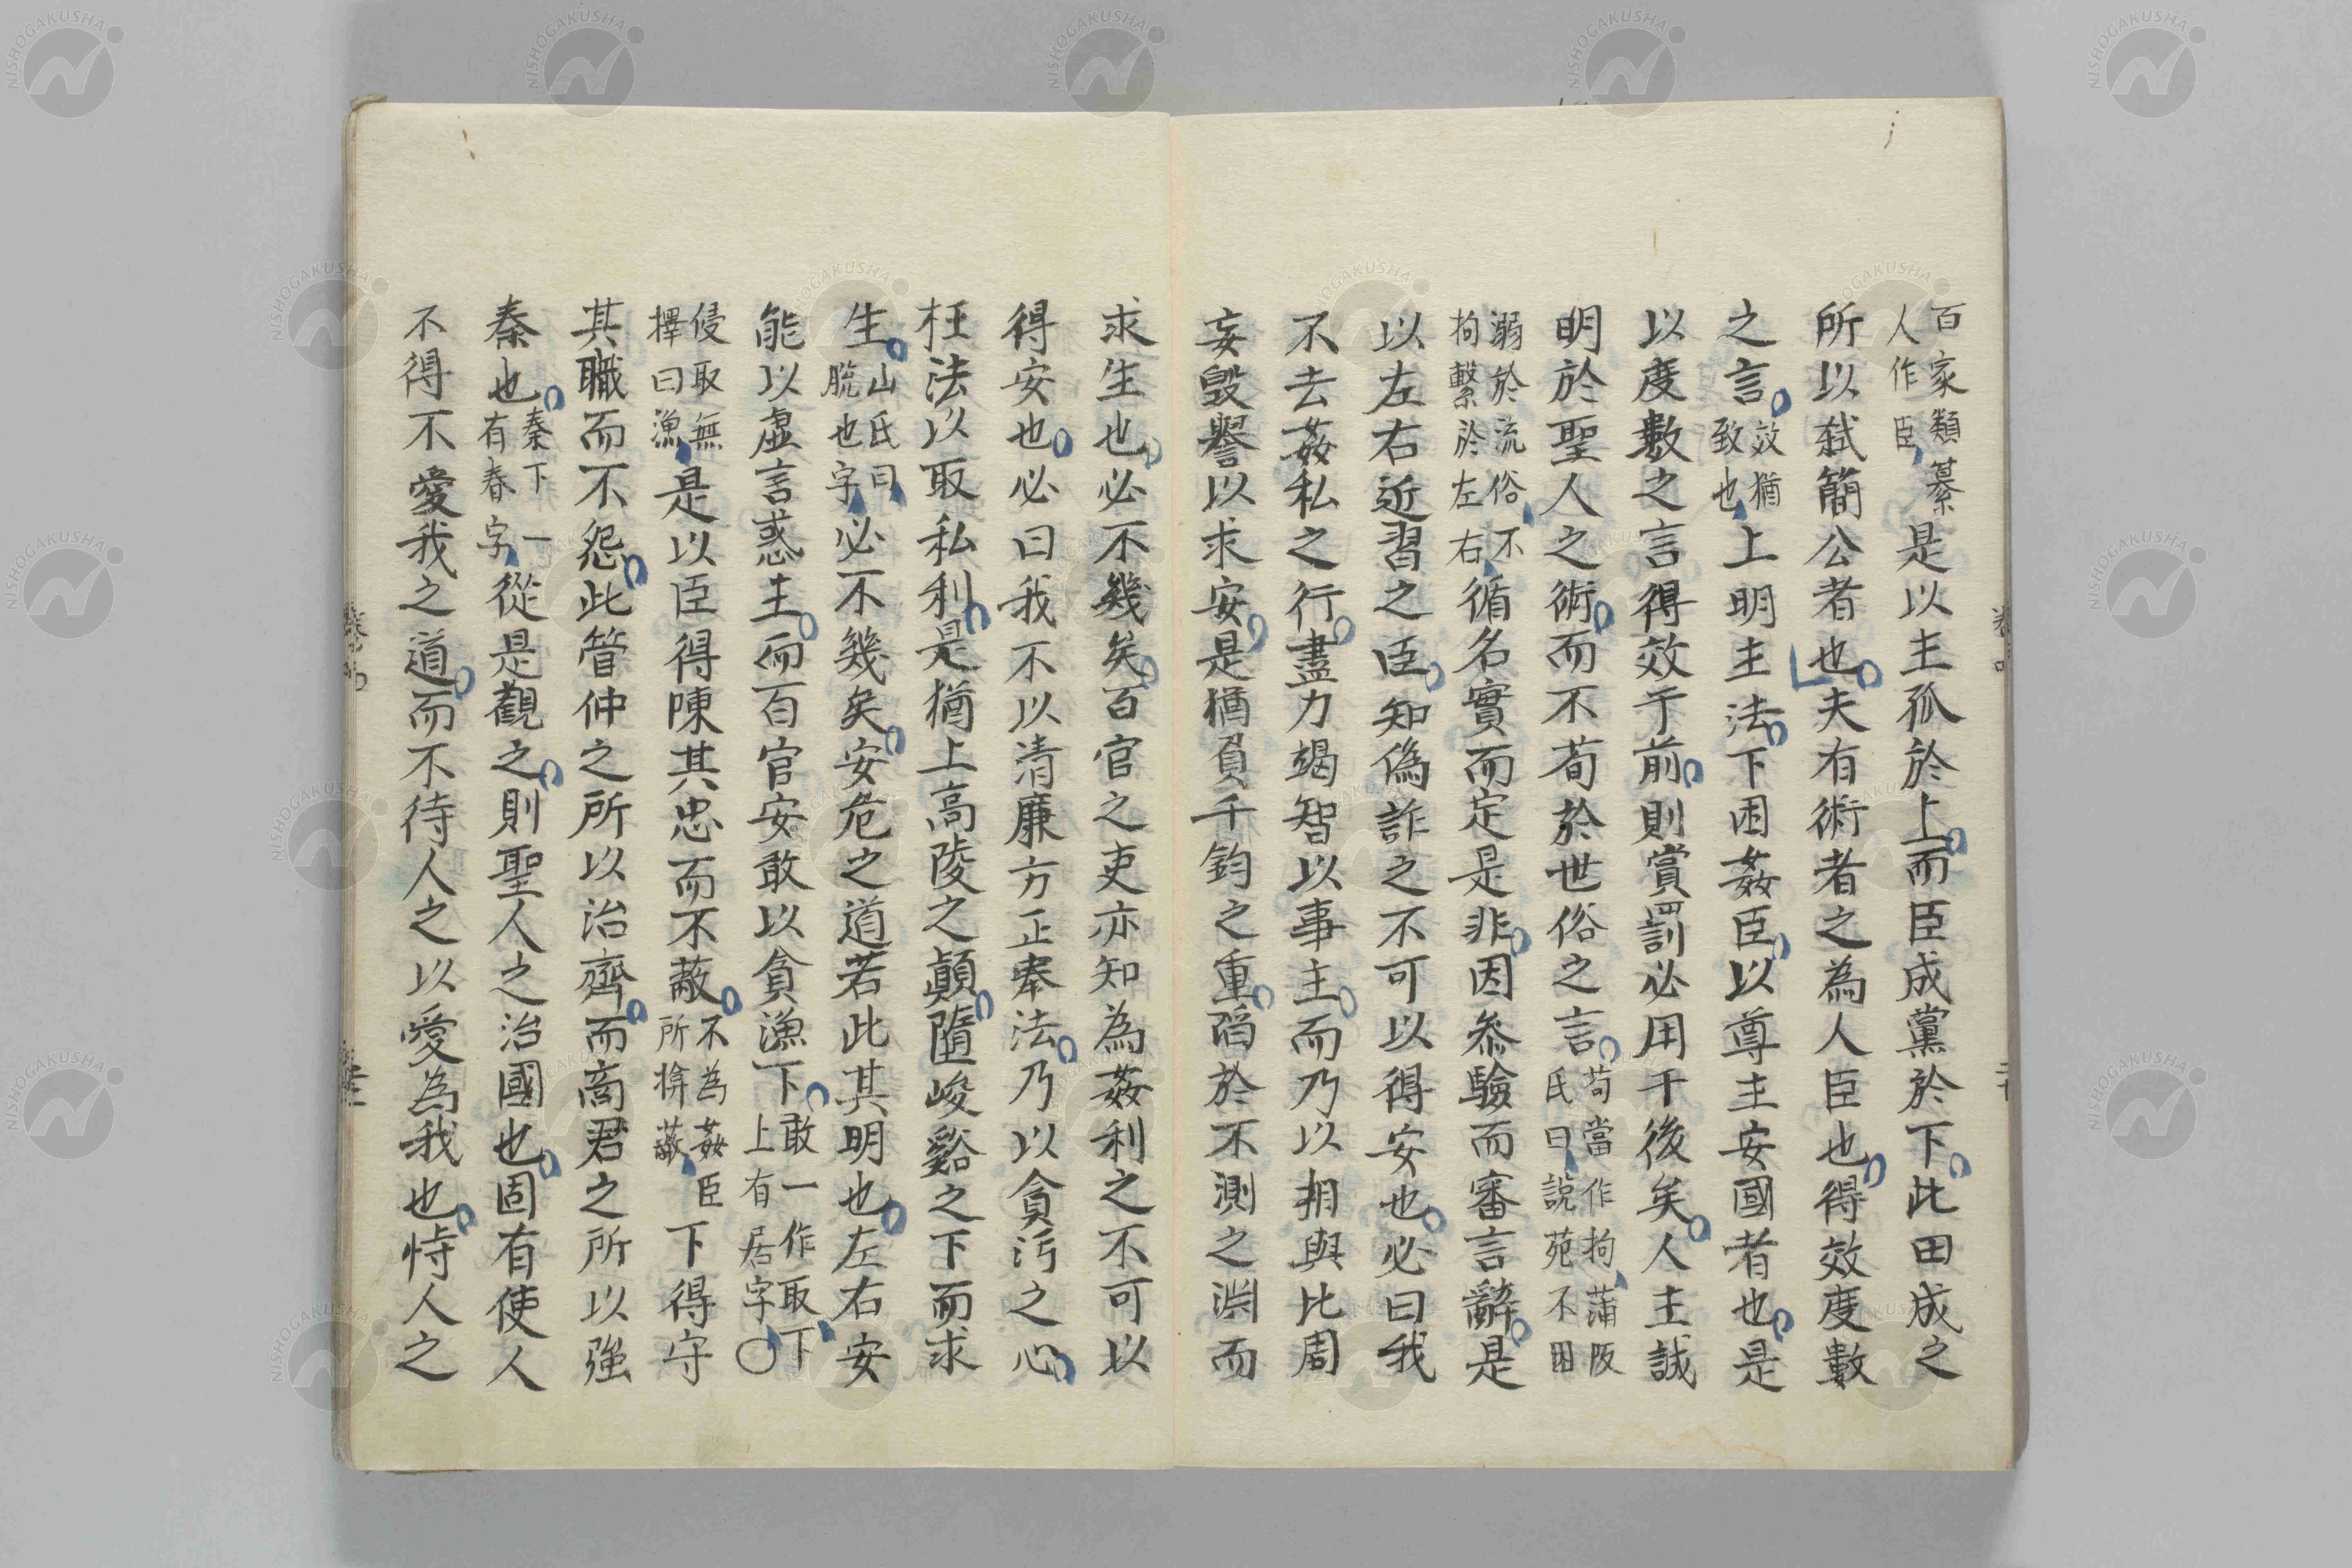 百家類纂人作臣是以主孤於上而臣成黨於下此田成之
所以弑簡公者也夫有術者之為人臣也得效度數
之言效猶致也上明主法下困姦臣以尊主安國者也是
以度數之言得效于前則賞罰必用于後矣人主誠
明於聖人之術而不苟於世俗之言苟當作拘蒲阪氏曰說苑不困
溺於流俗不拘繫於左右循名實而定是非因參驗而審言辭是
以左右近習之臣知偽詐之不可以得安也必曰我
不去姦私之行盡力竭智以事主而乃以相與比周
妄毀譽以求安是猶負千鈞之重陷於不測之淵而
求生也必不幾矣百官之吏亦知為姦利之不可以
得安也必曰我不以清廉方正奉法乃以貪污之心
枉法以取私利是猶上高陵之顛隨峻谿之下而求
生山氏曰脫也字必不幾矣安危之道若此其明也左右安
能以虛言惑主而百官安敢以貪漁下敢一作取下上有居字〇
侵取無擇曰漁是以臣得陳其忠而不蔽不為姦臣所揜蔽下得守
其職而不怨此管仲之所以治齊而商君之所以強
秦也秦下一有春字從是觀之則聖人之治國也固有使人
不得不愛我之道而不待人之以愛為我也恃人之